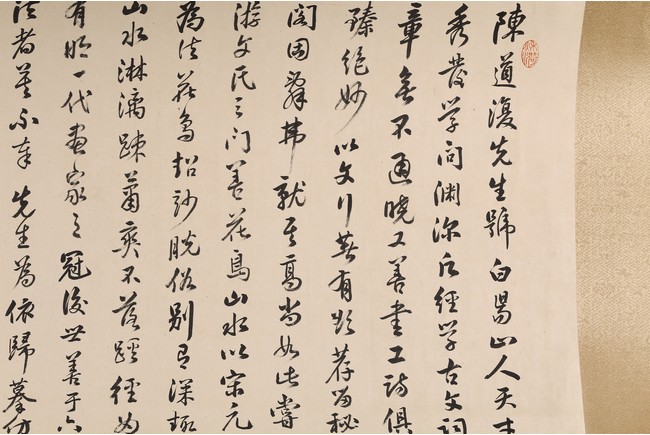 陳道復先生號白昜山人天才
秀發學問淵深凡經學古文詞
章無不通曉工善書工詩俱
臻絕妙以文行有欲荐留秘
閣固辭弗就其高尚如此嘗
游文氏之門善花鳥山水以宋元
為法花鳥超妙脫俗別有深趣
山水淋漓疎蕭爽不落蹊徑
有明一代畫家之冠後世善于六
法者莫不奉先生為依歸摹仿